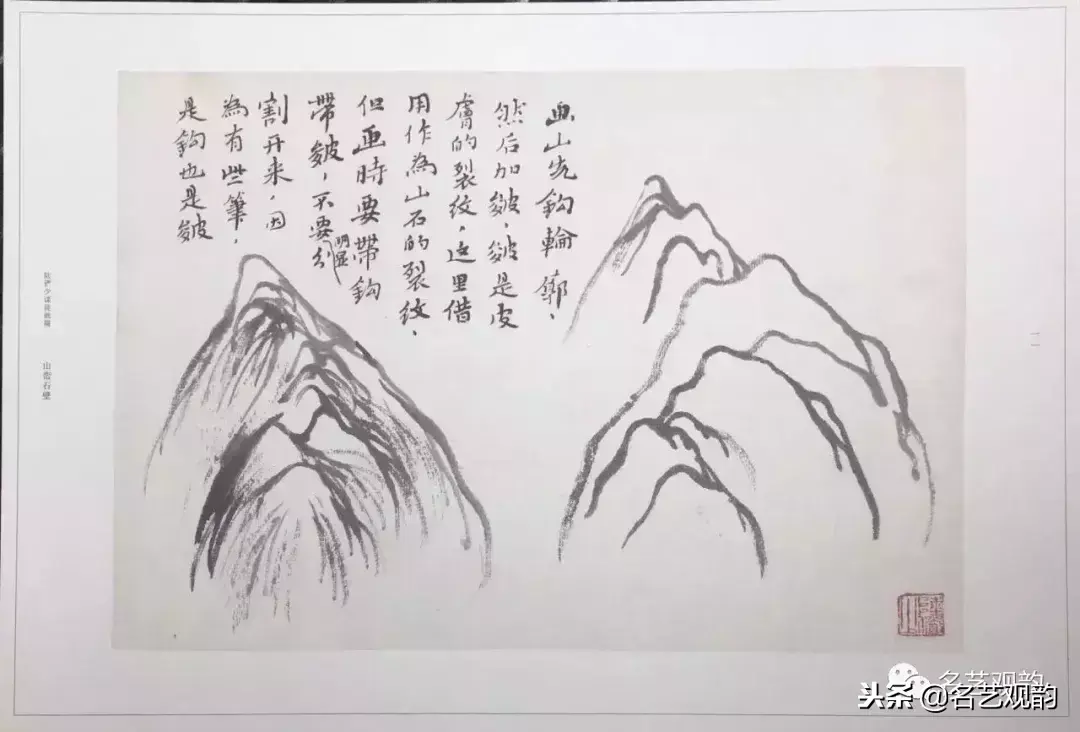 画山先鈎輪廓，
然后加皴，皴是皮
膚的裂纹，这里借
用作為山石的裂纹，
但画時要帶鈎
帶皴，不要明显分
割开来，因
為有些筆，
是鈎也是皴
山峦石壁
一一
名艺观韵
头条@名艺观韵